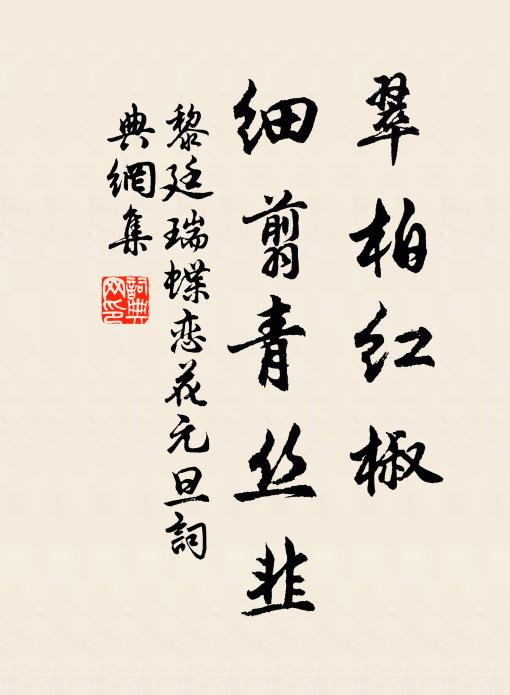 翠柏红椒
细剪青丝韭
黎廷瑞蝶恋花元旦詞
典網集
詞典网印